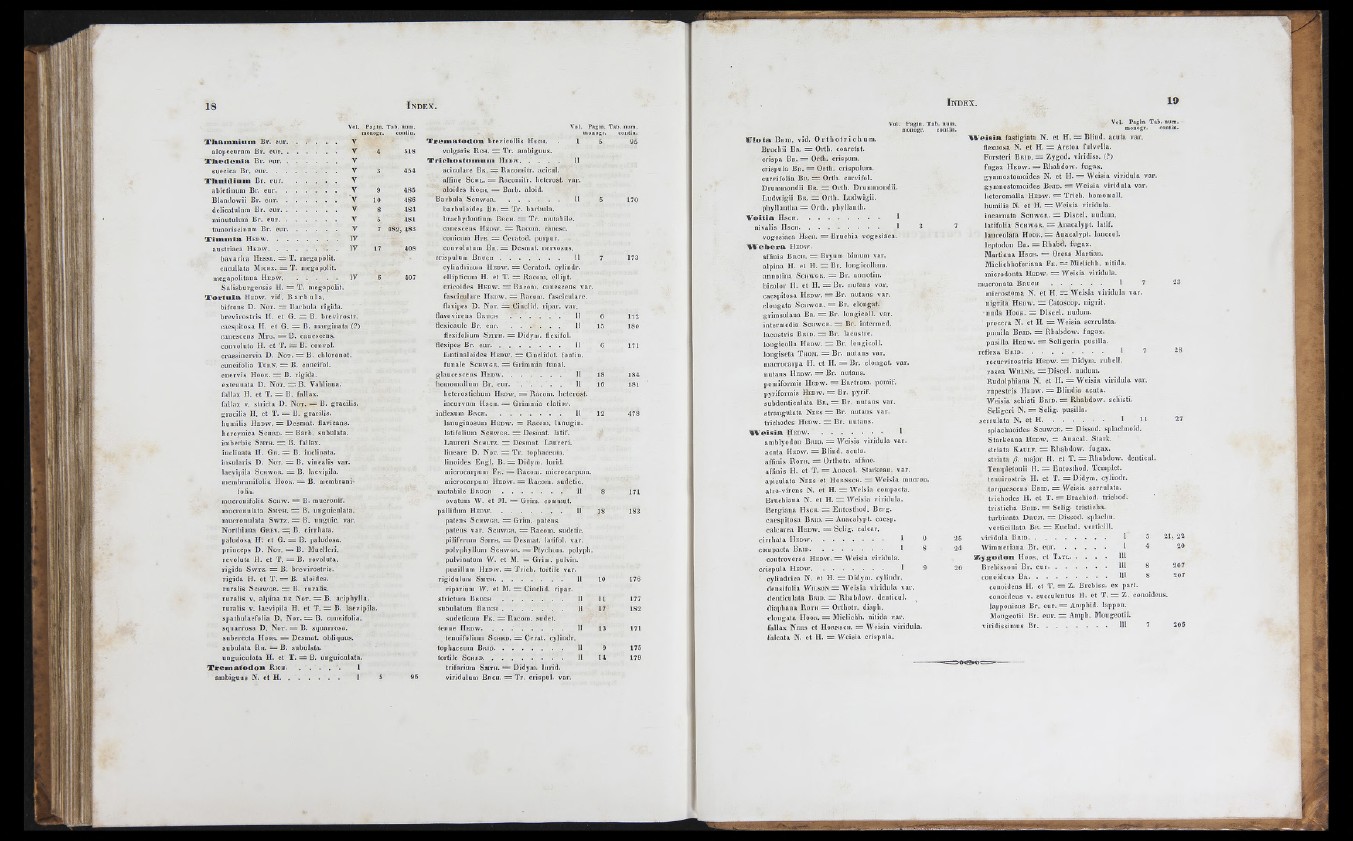 18
INDEX.
Vol. Pagin. Tab. num.
monogr. contin.
Thamnium Br. eur. . . . . . . V
alopecurum Br. eur. . . . . . . V 4 518
Thedenia Br. eur. . . . . . . V
suecica Br. eur. . . . . . . V 3 454
Thuidium Br. eur. . . . . . . V
abietinum Br. eur. . . . . . . V 9 485
Blandowii Br. eur. . . . . . . V 10 486
delicatulum Br. eur. . . . . . . V 8 484
minutulum Br. eur. . . . . . . V 5 481
tamariscinum Br. eur. . . . . . V 7 482, 483
Timmia HEDW. . . . . . . IV
austriaca HEDW. . . . . . . IV 17 408
bavarica HESSL. = T. megapolit.
cucullata MICHX. = T. megapolit.
megapolitana HEDW. . . . . . IV 5 407
Salisburgensis H. = T. megapolit.
Tortula HEDW. vid. Barbula.
bifrons D. NOT. = Barbula rigida.
brevirostris H. et G. = B. brevirostr.
caespitosa H. et G. = B. marginata (?)
canescens MTG. = B. canescens.
convoluta H. et T. = B. convol.
crassinervia D. NOT. = B. chloronot.
cuneifolia TURN. = B. cuneifol.
enervis HOOK. = B. rigida.
extenuata D. NOT. = B. Vahliana.
fallax H. et T. = B. fallax.
fallax v. stricta D. NOT. = B. gracilis.
gracilis H. et T. = B. gracilis.
humilis HEDW. = Desmat. flavicans.
hercynica SCHRD. = Barb. subulata.
imberbis SMTH. = B. fallax.
inclinata H. GR. = B. inclinata.
insularis D. NOT. = B. vinealis var.
laevipila SCHWGR. = B. laevipila.
membranifolia HOOK. = B. membrani-
folia.
mucronifolia SCHW. = B. mucronif.
mucronulata SMTH. = B. unguiculata.
mucronulata SWTZ. = B. unguic. var.
Northiana GREV. = B. cirrhata.
paludosa H. et G. = B. paludosa.
princeps D. NOT. = B. Muelleri.
revoluta H. et T. = B. revoluta.
rigida SWTZ. = B. brevirostris.
rigida H. et T. = B. aloides.
ruralis SCHWGR. = B. ruralis.
ruralis v. alpina DE NOT. = B. aciphylla.
ruralis v. laevipila H. et T. = B. laevipila.
spathulaefolia D. NOT. = B. cuneifolia.
squarrosa D. NOT. = B. squarrosa.
suberecta HOOK. = Desmat. obliquus.
subulata BR. = B. subulata.
unguiculata H. et T. = B. unguiculata.
Trematodon RICH. . . . . . I
ambiguus N. et H. . . . . . . I 5 95
Vol. Pagin. Tab. num.
monogr. contin.
Trematodon brevicollis HORN. . . I 5 95
vulgaris RCH. = Tr. ambiguus.
Trichostomum HEDW. . . . . II
aciculare BR. = Racomitr. acicul.
affine SCHL. = Racomitr. heterost. var.
aloides KOCH. = Barb. aloid.
Barbula SCHWGR. . . . . . II 5 170
barbuloides BR. = Tr. barbula.
brachydontium BRCH. = Tr. mutabile.
canescens HEDW. = Racom. canesc.
conicum HPE = Ceratod. purpur.
convolutum BR. = Desmat. nervosus.
crispulum BRUCH . . . . . . . II 7 173
cylindricum HEDW. = Ceratod. cylindr.
ellipticum H. et T. = Racom. ellipt.
ericoides HEDW. = Racom. canescens var.
fasciculare HEDW. = Racom. fasciculare.
flexipes D. NOT. = Cinclid. ripar. var.
flavovirens BRUCH . . . . . . . II 6 172
flexicaule Br. eur. . . . . . . II 15 180
flexifolium SMTH. = Didym. flexifol.
flexipes Br. eur. . . . . . . II 6 171
fontinaloides HEDW. = Cinclidot. fontin.
funale SCHWGR. = Grimmia funal.
glaucescens HEDW. . . . . . . II 18 184
homomallum Br. eur. . . . . . II 16 181
heterostichum HEDW. = Racom. heterost.
incurvum HSCH. = Grimmia clatior.
inflexum BRCH. . . . . . . II 12 478
lanuginosum HEDW. = Racom. lanugin.
latifolium SCHWGR. = Desmat. latif.
Laureri SCHLTZ. = Desmat. Laureri.
lineare D. NOT. = Tr. tophaceum.
linoides Engl. B. = Didym. lurid.
microcarpum FK. = Racom. microcarpum.
microcarpum HEDW. = Racom. sudetic.
mutabile BRUCH . . . . . . . II 8 174
ovatum W. et M. = Grim. commut.
pallidum HEDW. . . . . . . II 18 183
patens SCHWGR. = Grim. patens.
patens var. SCHWGR. = Racom. sudetic.
piliferum SMTH. = Desmat. latifol. var.
polyphyllum SCHWGR. = Ptychom. polyph.
pulvinatum W. et M. = Grim. pulvin.
pusillum HEDW. = Trich. tortile var.
rigidulum SMTH. . . . . . . II 10 176
riparium W. et M. = Cinclid. ripar.
strictum BRUCH . . . . . . . II 11 177
subulatum BRUCH . . . . . . . II 17 182
sudeticum FK. = Racom. sudet.
tenue HEDW. . . . . . . II 13 171
tenuifolium SCHRD. = Cerat. cylindr.
tophaceum BRID. . . . . . . II 9 175
tortile SCHRD. . . . . . . II 14 179
trifarium SMTH. = Didym. lurid.
viridulum BRCH. = Tr. crispul. var.
INDEX.
19
Vol. Pagin. Tab. num.
monogr. contin.
Ulota BRID. vid. Orthotrichum.
Bruchii BR. = Orth. coarctat.
crispa BR. = Orth. crispum.
crispula BR. = Orth. crispulum.
curvifolia BR. = Orth. curvifol.
Drummondii BR. = Orth. Drummondii.
Ludwigii BR. = Orth. Ludwigii.
phyllantha = Orth. phyllanth.
Voitia HSCH. . . . . . . I
nivalis HSCH. . . . . . . I 3 7
vogesiaca HSCH. = Bruchia vogesiaca.
Webera HEDW.
affinis BRCH. = Bryum bimum var.
alpina H. et H. = Br. longicollum.
annotina SCHWGR. = Br. annotin.
bicolor H. et H. = Br. nutans var.
caespitosa HEDW. = Br. nutans var.
elongata SCHWGR. = Br. elongat.
grimsulana BR. = Br. longicoll. var.
intermedia SCHWGR. = Br. intermed.
lacustris BRID. = Br. lacustre.
longicolla HEDW. = Br. longicoll.
longiseta THOM. = Br. nutans var.
macrocarpa H. et H. = Br. elongat. var.
nutans HEDW. = Br. nutans.
pomiformis HEDW. = Bartram. pomif.
pyriformis HEDW. = Br. pyrif.
subdenticulata BR. = Br. nutans var.
strangulata NEES = Br. nutans var.
trichodes HEDW. = Br. nutans.
Weisia HEDW. . . . . . . I
amblyodon BRID. = Weisia viridula var.
acuta HEDW. = Blind. acuta.
affinis ROTH. = Orthotr. affine.
affinis H. et T. = Anacal. Starkean. var.
apiculata NEES et HORNSCH. = Weisia mucron.
atro-virens N. et H. = Weisia compacta.
Bruchiana N. et H. = Weisia viridula.
Bergiana HSCH. = Entosthod. Berg.
caespitosa BRID. = Anacalypt. caesp.
calcarea HEDW. = Selig. calcar.
cirrhata HEDW. . . . . . . I 9 25
compacta BRID. . . . . . . I 8 24
controversa HEDW. = Weisia viridula.
crispula HEDW. . . . . . . I 9 26
cylindrica N. et H. = Didym. cylindr.
densifolia WILSON = Weisia viridula var.
denticulata BRID. = Rhabdow. denticul.
diaphana ROTH = Orthotr. diaph.
elongata HOOK. = Mielichh. nitida var.
fallax NEES et HORNSCH. = Weisia viridula.
falcata N. et H. = Weisia crispula.
Vol. Pagin. Tab. num.
monogr. contin.
Weisia fastigiata N. et H. = Blind. acuta var.
flexuosa N. et H. = Arctoa fulvella.
Forsteri BRID. = Zygod. viridiss. (?)
fugax HEDW. = Rhabdow. fugax.
gymnostomoides N. et H. = Weisia viridula var.
gymnostomoides BRID. = Weisia viridula var.
heteromalla HEDW. = Trich. homomall.
humilis N. et H. = Weisia viridula.
incarnata SCHWGR. = Discel. nudum.
latifolia SCHWGR. = Anacalypt. latif.
lanceolata HSCH. = Anacalypt. lanceol.
leptodon BR. = Rhabd. fugax.
Martiana HOOK. = Oreas Martian.
Mielichhoferiana FK. = Mielichh. nitida.
microdonta HEDW. = Weisia viridula.
mucronata BRUCH . . . . . . . I 7 23
microstoma N. et H. = Weisia viridula var.
nigrita HEDW. = Catoscop. nigrit.
nuda HOOK. = Discel. nudum.
procera N. et H. = Weisia serrulata.
pumila BRID. = Rhabdow. fugax.
pusilla HEDW. = Seligeria pusilla.
reflexa BRID. . . . . . . I 7 28
recurvirostris HEDW. = Didym. rubell.
rosea WHLNB. = Discel. nudum.
Rudolphiana N. et H. = Weisia viridula var.
rupestris HEDW. = Blindia acuta.
Weisia schisti BRID. = Rhabdow. schisti.
Seligeri N. = Selig. pusilla.
serrulata N. et H. . . . . . . I 11 27
splachnoides SCHWGR. = Dissod. splachnoid.
Starkeana HEDW. = Anacal. Stark.
striata KAULF. = Rhabdow. fugax.
striata β. major H. et T. = Rhabdow. dentical.
Templetonii H. = Entosthod. Templet.
tenuirostris H. et T. = Didym. cylindr.
torquescens BRID. = Weisia serrulata.
trichodes H. et T. = Brachiod. trichod.
tristicha BRID. = Selig. tristicha.
turbinata DRUM. = Dissod. splachn.
verticillata BR. = Euclad. verticill.
viridula BRID. . . . . . . I 5 21, 22
Wimmeriana Br. eur. . . . . . I 4 20
Zygodon HOOK. et TAYL. . . . . III
Brebissoni Br. eur. . . . . . . III 8 207
conoideus BR. . . . . . . III 8 207
conoideus H. et T. = Z. Brebiss. ex part.
conoideus v. succulentus H. et T. = Z. conoideus.
lapponicus Br. eur. = Amphid. lappon.
Mougeotii Br. eur. = Amph. Mougeotii.
viridissimus BR. . . . . . . III 7 206